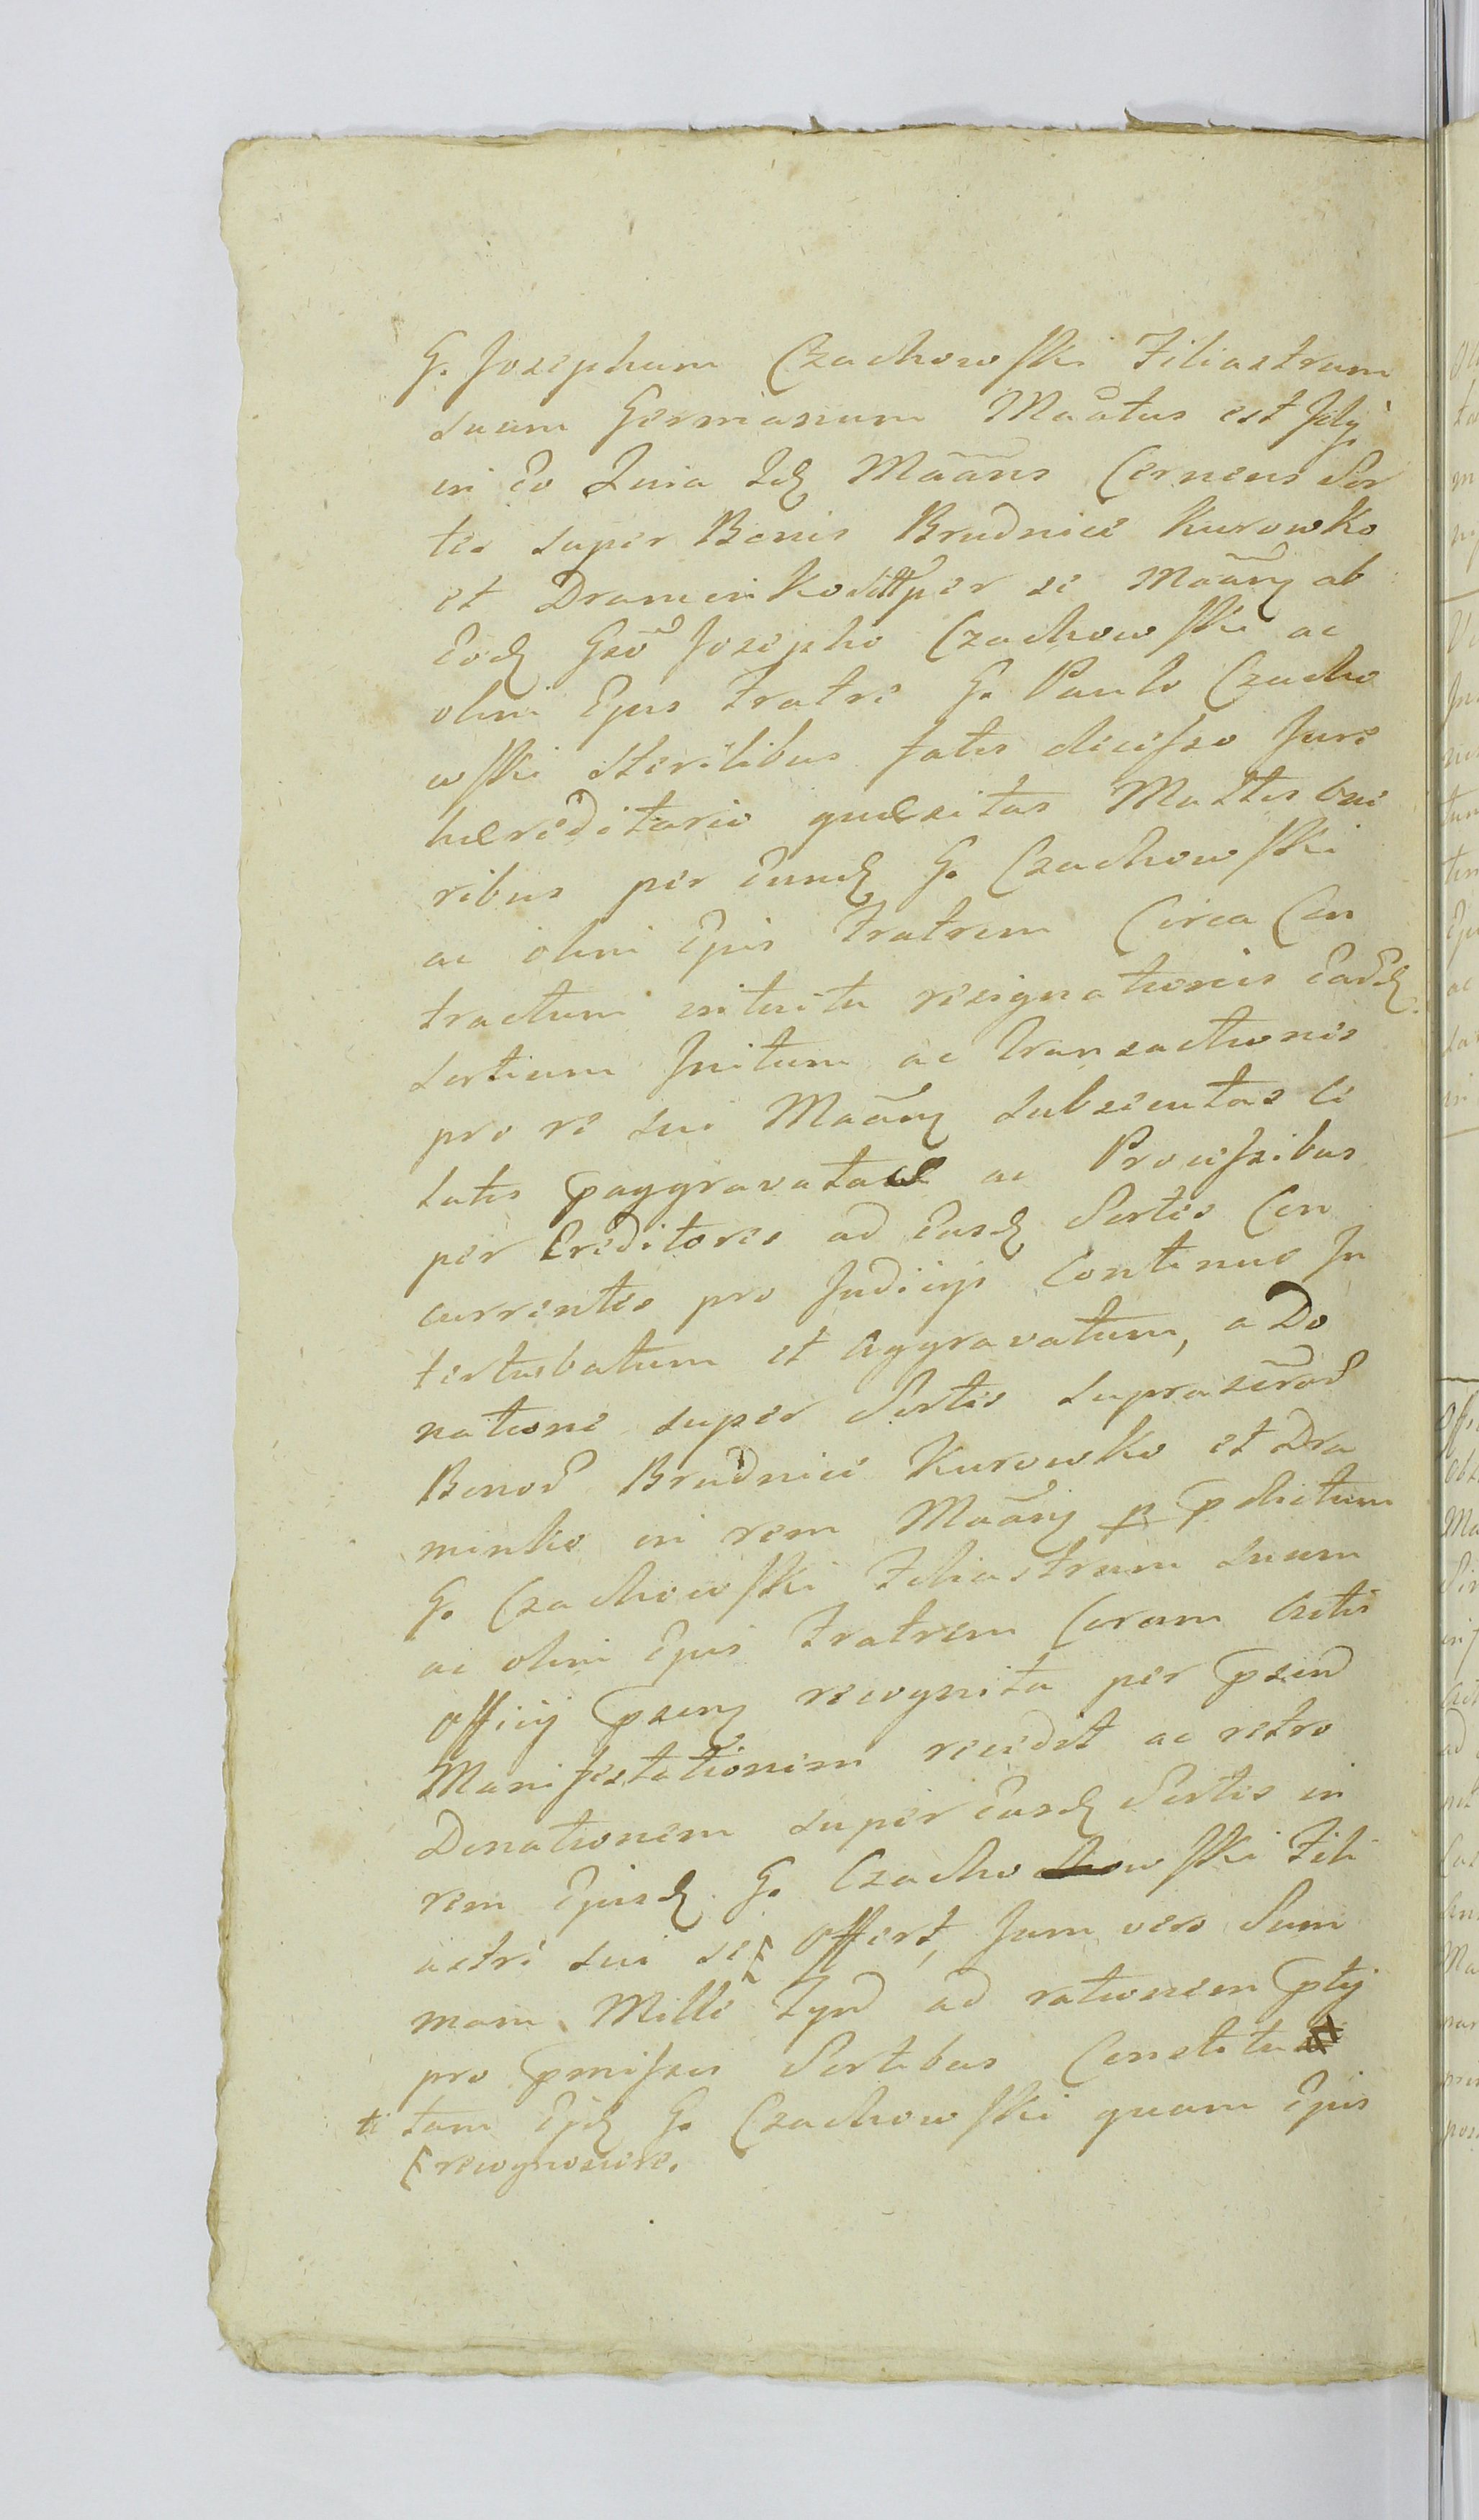 G. Josephum Czachowski Filiastrum
suum Germanum Maatus est Idq
in Eo Quia Idq Maans Cernens Sor
tes super Bonis Brudnice Kurowko
et Draminko sitt per se Maanq ab
Eodq Gso Josepho Czachowski ac
olim Ejus Fratre G. Paulo Czacho
wski sterilibus fatis decisso Jure
haereditario quaesitas Multis one
ribus per Eundq G. Czachowski
ac olim Ejus Fratrem Circa Con
tractum intuitu resignationis Eardq
Sortium Initum ac transactionis
pro re sui Maanq subsecutae Ci
tatis paggravatas ac Processibus
per Creditores ad Easdq Sortes Con
currentes pro Judicijs Continuo In
terturbatum et Aggravatum, a Do
natione super Sortes suprascrad
Bonod Brudnice Kurowko et Dra
minko in rem Maanq p pdictum
G. Czachowski Filiastrum suum
ac olim Ejus Fratrem Coram Actis
Officij psenq recognita per psend
Manifestationem recedit ac retro
Donationem super Easdq Sortes in
rem Ejusdq G. Czacho wski Fili
astri sui se Offert, Jam vero Sum
mam Mille Tynd ad rationem ptij
pro pmissis Sortibus Constitu
ti tam Ejdq G. Czachowski quam Ejus
recognoscere.